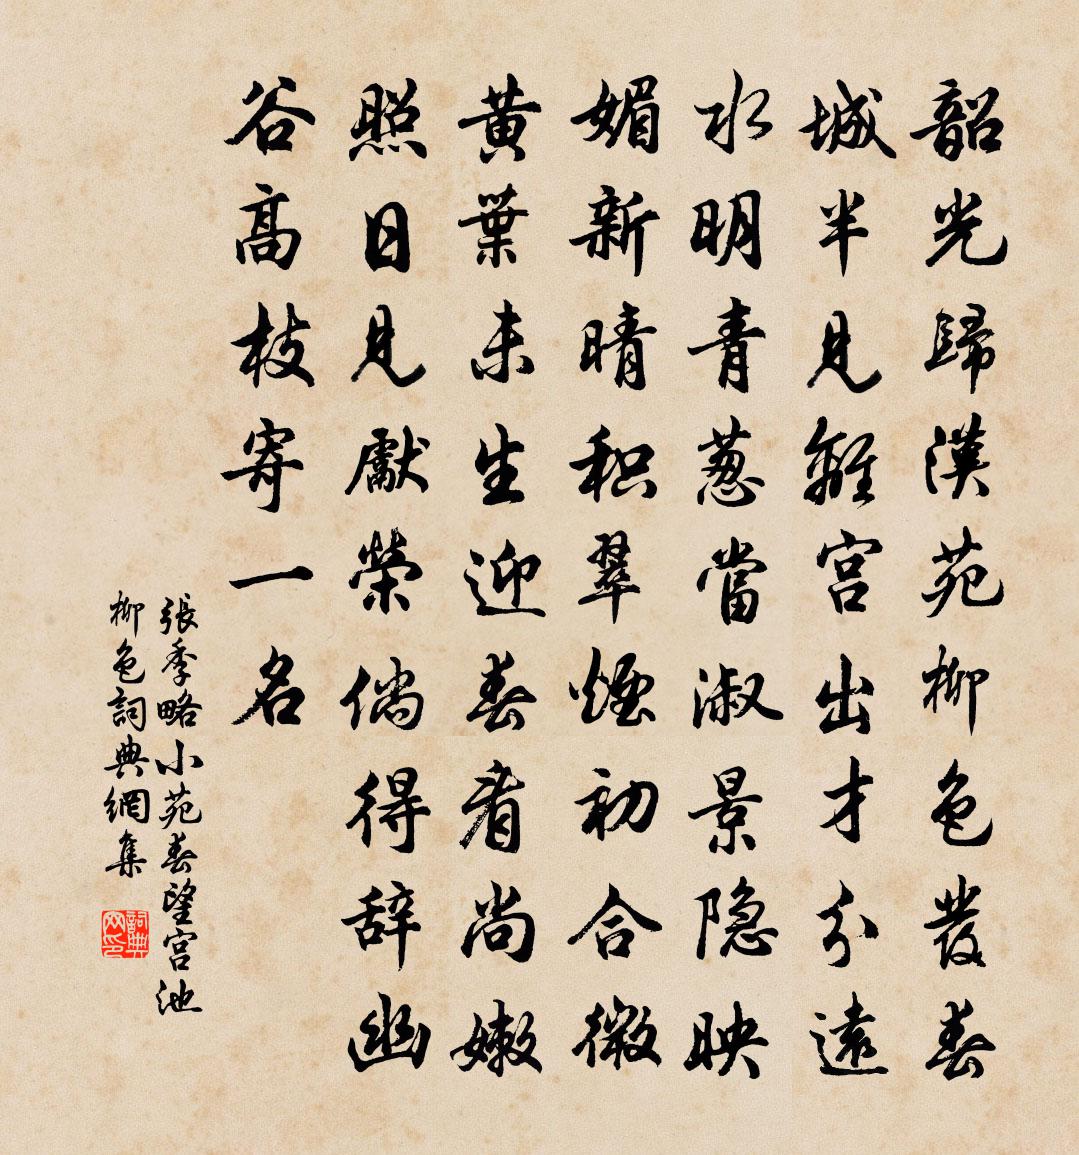 韶光歸漢苑柳色發春
城半見離宮出才分遠
水明青蔥當淑景隐映
媚新晴积翠煙初合微
黄葉未生迎春看尚嫩
照日見獻榮倘得辞幽
谷高枝寄一名
張季略小苑春望宮池
柳色詞典網集
詞典网印